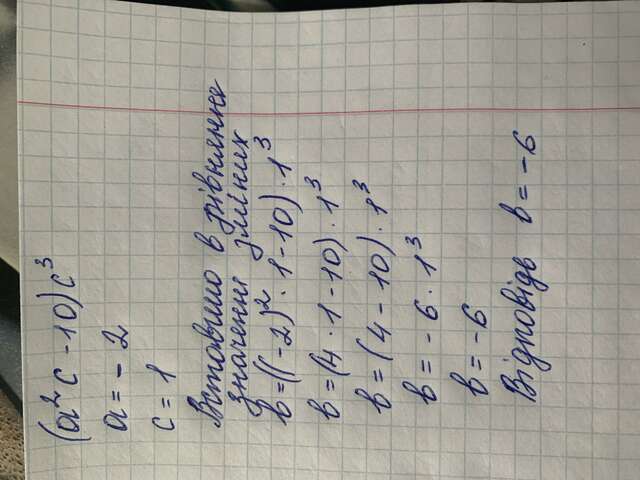 (a²c - 10)c³
a = - 2
c = 1
Вставимо в рівняння
значенні змінних
в = ((-2)² · 1 - 10) · 1³
в = (4 · 1 - 10) · 1³
в = (4 - 10) · 1³
в = - 6 · 1³
в = - 6
Відповідь в = - 6